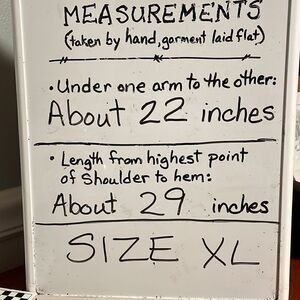 MEASUREMENTS
(taken by hand, garment laid flat)
• Under one arm to the other:
About 22 inches
• Length from highest point
of Shoulder to hem:
About 29 inches
SIZE XL